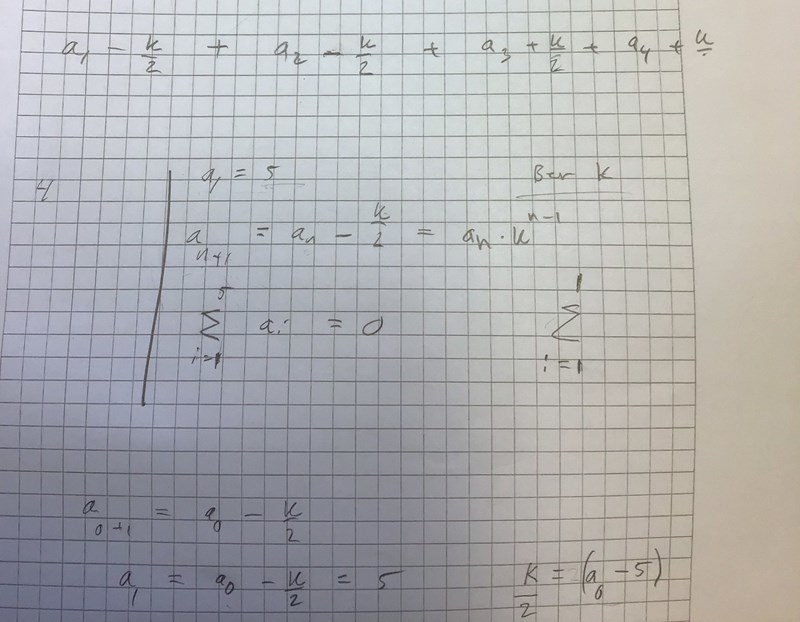 a₁ - k/2 + a₂ - k/2 + a₃ + k/2 + a₄ + k
4 a₁ = 5 Ber k
aₙ₊₁ = aₙ - k/2 = aₙ · kⁿ⁻¹
∑ᵢ₌₁⁵ aᵢ = 0 ∑ᵢ₌₁¹
a₀₊₁ = a₀ - k/2
a₁ = a₀ - k/2 = 5 k/2 = (a₀ - 5)